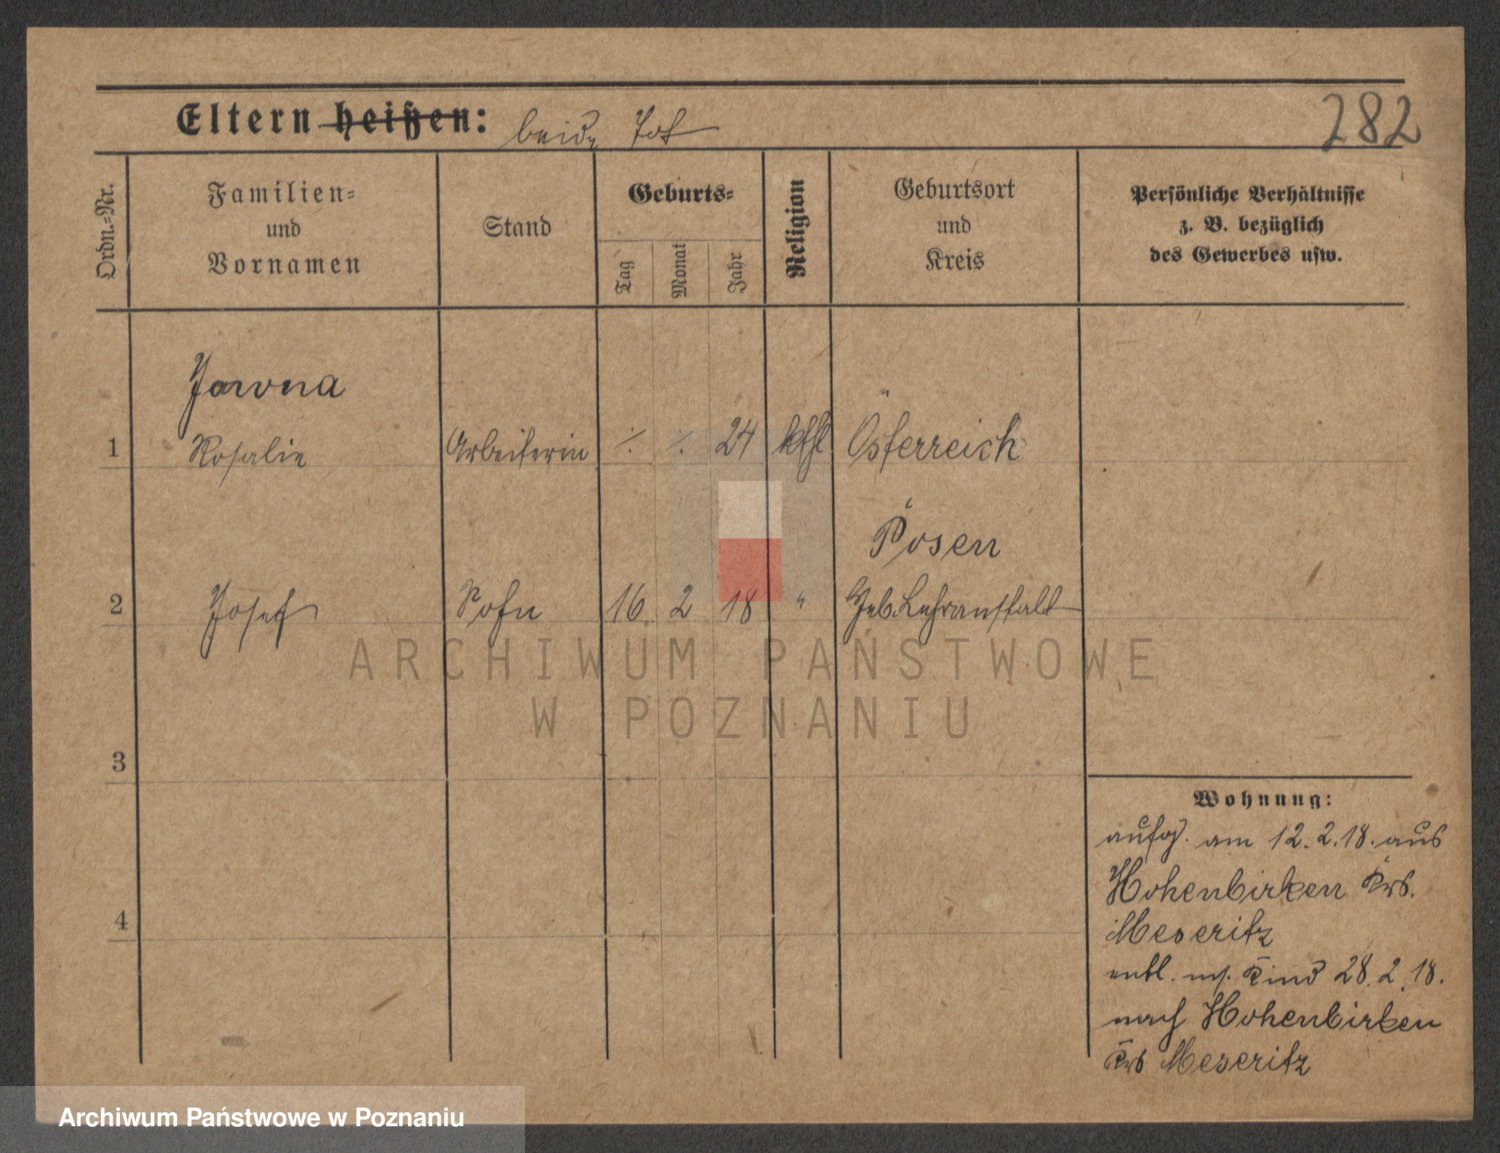 Eltern heißen: beide tot
282
Ordn.-Nr.
Familien-
und
Vornamen
Stand
Geburts-
Tag
Monat
Jahr
Religion
Geburtsort
und
Kreis
Persönliche Verhältnisse
z. B. bezüglich
des Gewerbes usw.
Jawna
1 Rosalie Arbeiterin ٪ ٪ 24 kthl Österreich
Posen
2 Josef Sohn 16 2 18 " Heb. Lehranstalt
ARCHIWUM PAŃSTWOWE
W POZNANIU
3
Wohnung:
aufg. am 12.2.18. aus
Hohenbirken Krs.
Meseritz
4
entl. m. Kind 28.2.18.
nach Hohenbirken
Krs Meseritz
Archiwum Państwowe w Poznaniu